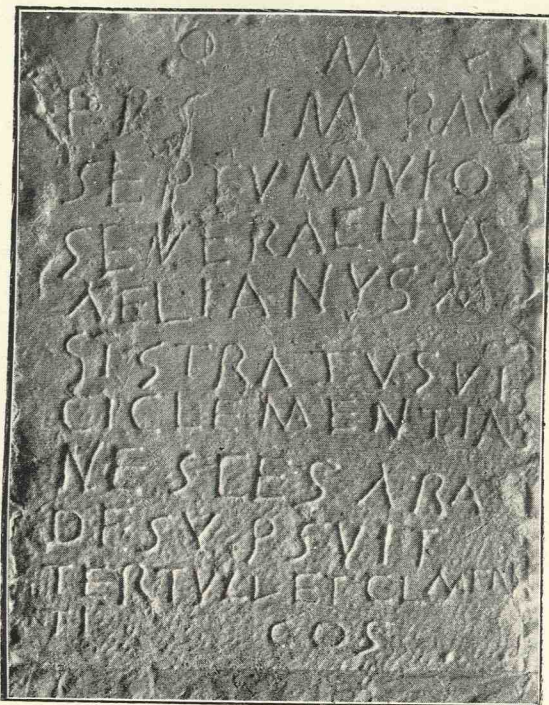 I O M
PRS IM P AV
SEPTVMNIO
SEVERAENVS
AELIANVS M
SISTRATVS VI
CICLEMENTIA
NESCES ARA
DESV PSVIT
TERTVLL ET CLMEN
TI COS